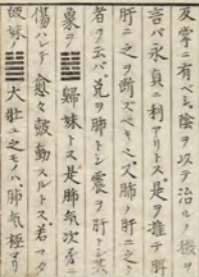 反掌ニ有ベシ、陰ヲ以テ治ルノ徴ヲ
言バ永貞ニ利アリトス、是ヲ推テ肝
肝ニ之ヲ断ズベキベズ、肺ノ肝ニ之
者ヲ云バ兌ヲ肺トシ震ヲ肝トシ其
象ヲ䷵歸妹トス、是肺気次㐧ニ
傷ハレテ愈々皷動スルトス、若ヌカ
ノ䷡大壮ニ之モノハ、肺気極リ